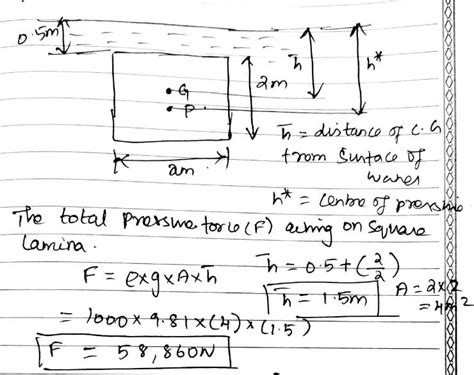 0.5m
h̄
h*
• G
2m
• P
2m
h̄ = distance of C.G
from Surface of
water
h* = Centre of pressure
The total Pressure force (F) acting on Square
Lamina.
F = ρ×g×A×h̄
h̄ = 0.5 + (2/2)
h̄ = 1.5m
A = 2×2
= 4m²
= 1000 × 9.81 × (4) × (1.5)
F = 58,860N